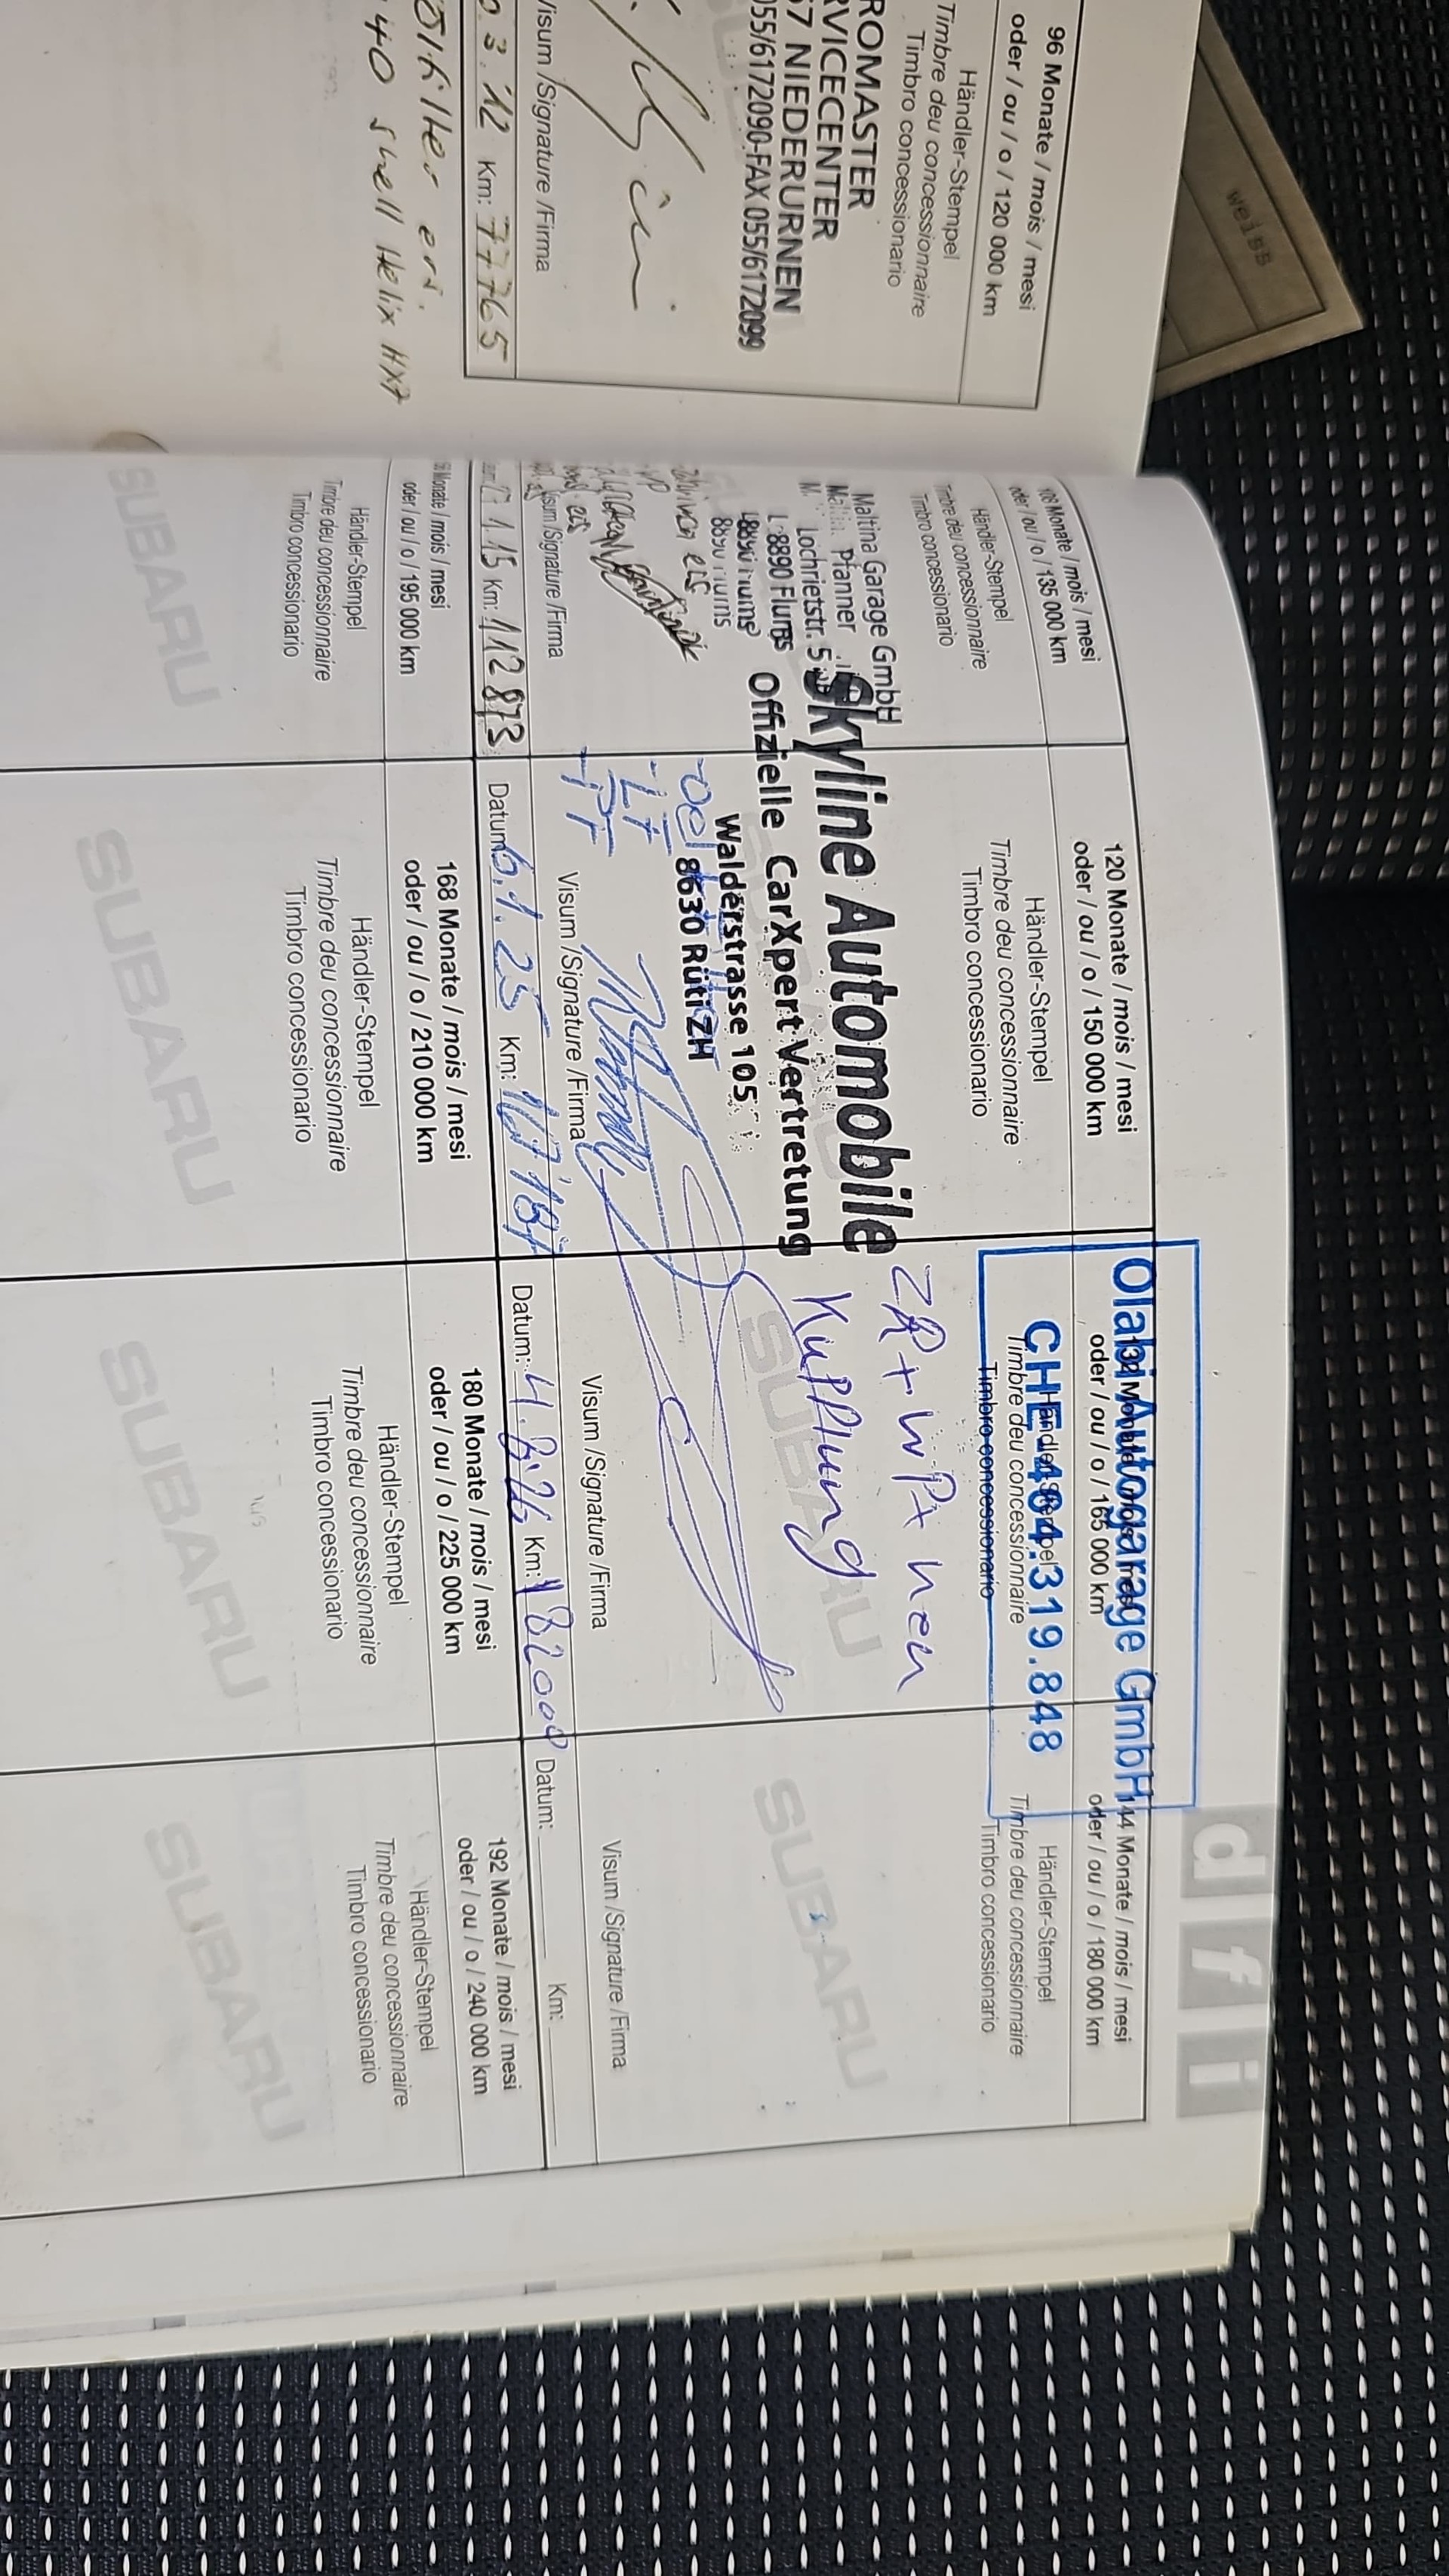 weiss
96 Monate / mois / mesi
oder / ou / o / 120 000 km
Händler-Stempel
Timbre deu concessionnaire
Timbro concessionario
ROMASTER
RVICECENTER
67 NIEDERURNEN
055/6172090-FAX 055/6172099
Visum /Signature /Firma
3.12 Km: 77765
40 Shell Helix HX7
Monate / mois / mesi
oder / ou / o / 135 000 km
Händler-Stempel
Timbre deu concessionnaire
Timbro concessionario
Maltina Garage GmbH
Pfanner
Lochrietstr. 5
8890 Flums
Visum /Signature /Firma
1.15 Km: 112873
120 Monate / mois / mesi
oder / ou / o / 150 000 km
Händler-Stempel
Timbre deu concessionnaire
Timbro concessionario
Skyline Automobile
Offizielle CarXpert Vertretung
Walderstrasse 105
8630 Rüti ZH
-Oel
Visum /Signature /Firma
Datum: 6.1.25 Km:
Olabi Autogarage GmbH
oder / ou / o / 165 000 km
CHE-464.319.848
Timbre deu concessionnaire
Timbro concessionario
ZR + WPX neu
Kupplung
SUBARU
Visum /Signature /Firma
Datum: Km: 182000
144 Monate / mois / mesi
oder / ou / o / 180 000 km
Händler-Stempel
Timbre deu concessionnaire
Timbro concessionario
SUBARU
Visum /Signature /Firma
Datum: Km:
d f i
Monate / mois / mesi
oder / ou / o / 195 000 km
Händler-Stempel
Timbre deu concessionnaire
Timbro concessionario
SUBARU
168 Monate / mois / mesi
oder / ou / o / 210 000 km
Händler-Stempel
Timbre deu concessionnaire
Timbro concessionario
SUBARU
180 Monate / mois / mesi
oder / ou / o / 225 000 km
Händler-Stempel
Timbre deu concessionnaire
Timbro concessionario
SUBARU
192 Monate / mois / mesi
oder / ou / o / 240 000 km
Händler-Stempel
Timbre deu concessionnaire
Timbro concessionario
SUBARU